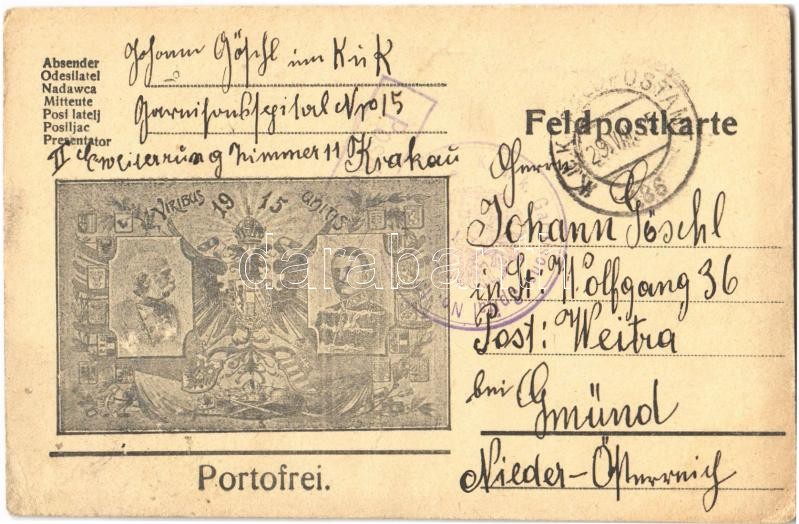 Absender
Odesilatel
Nadawca
Mitteute
Posi latelj
Posiljac
Presentator
Johann Göschl im K u K
Garnisonsspital Nro 15
II Erweiterrung Zimmer 11 Krakau
VIRIBUS 1915 UNITIS
Portofrei.
Feldpostkarte
Herrn
Johann Göschl
in St. Wolfgang 36
Post: Weitra
bei Gmünd
Nieder-Österreich
darabanth